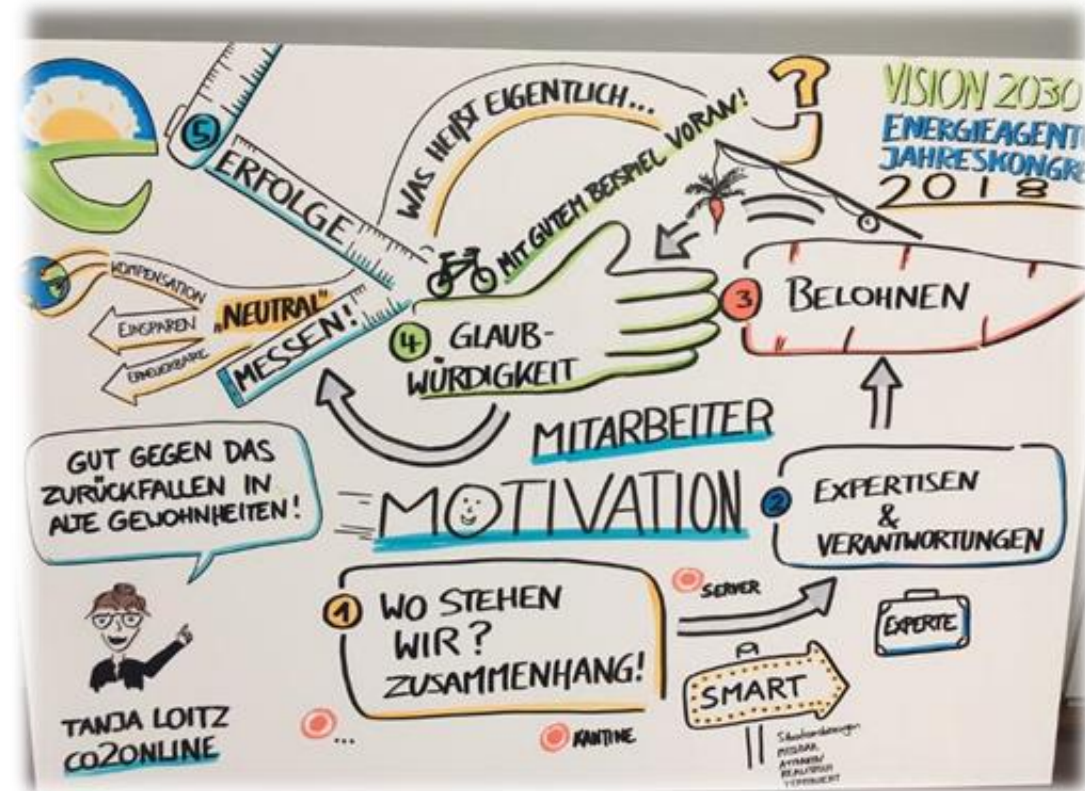 VISION 2030
ENERGIEAGENT
JAHRESKONGR
2018
WAS HEIẞT EIGENTLICH...
?
MIT GUTEM BEISPIEL VORAN!
5
ERFOLGE
MESSEN!
KOMPENSATION
EINSPAREN
ERNEUERBARE
„NEUTRAL"
4 GLAUB-
WÜRDIGKEIT
3 BELOHNEN
MITARBEITER
MOTIVATION
2 EXPERTISEN
&
VERANTWORTUNGEN
EXPERTE
GUT GEGEN DAS
ZURÜCKFALLEN IN
ALTE GEWOHNHEITEN!
1 WO STEHEN
WIR?
ZUSAMMENHANG!
SERVER
KANTINE
...
SMART
MESSBAR
ATTRAKTIV
REALISTISCH
TERMINIERT
TANJA LOITZ
CO2ONLINE